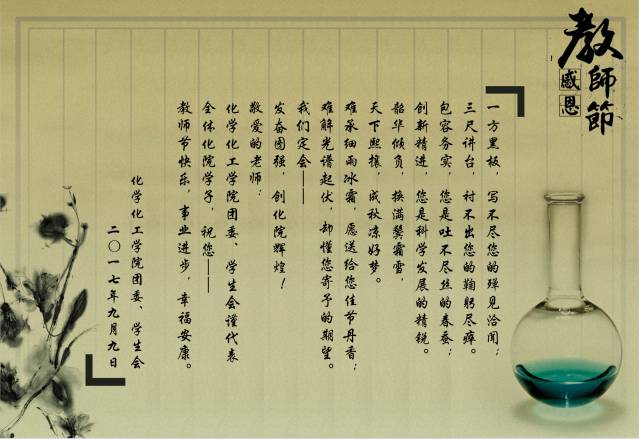 教師節
感恩
一方黑板，写不尽您的殚见洽闻；
三尺讲台，衬不出您的鞠躬尽瘁。
包容务实，您是吐不尽丝的春蚕；
创新精进，您是科学发展的精锐。
韶华倾负，换满鬓霜雪，
天下熙攘，成秋凉好梦。
难承细雨冰霜，愿送给您佳节丹香；
难解光谱起伏，却懂您寄予的期望。
我们定会——
发奋图强，创化院辉煌！
敬爱的老师：
化学化工学院团委、学生会谨代表
全体化院学子，祝您——
教师节快乐，事业进步，幸福安康。
化学化工学院团委、学生会
二〇一七年九月九日